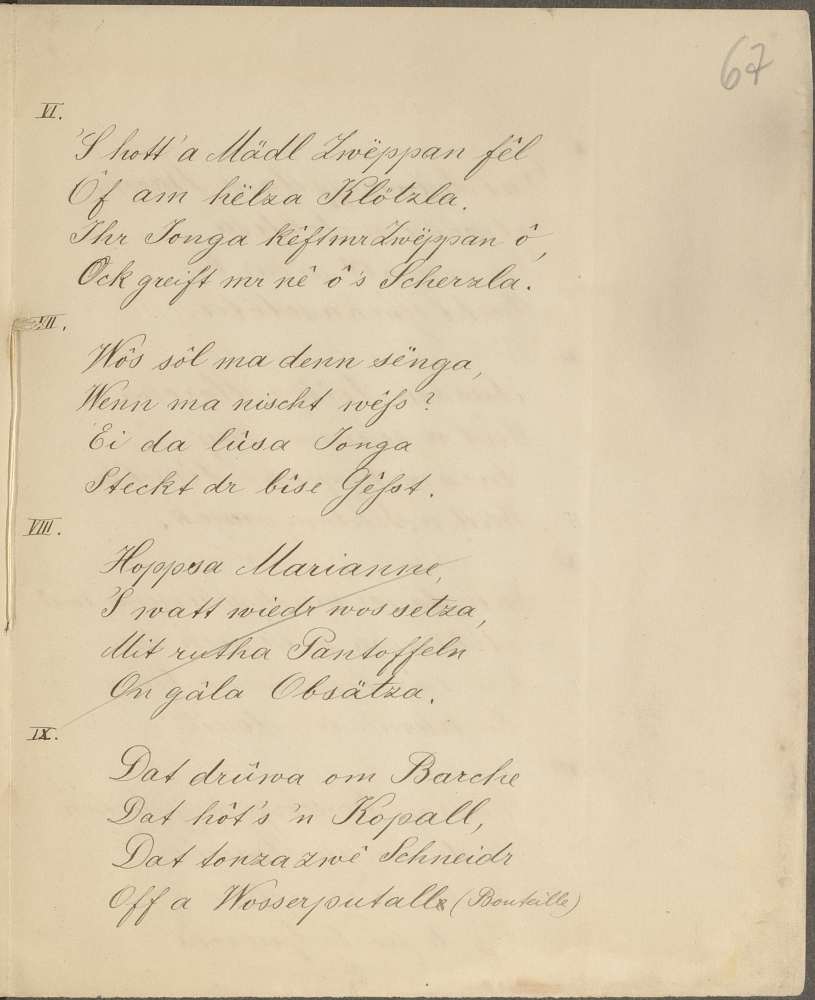 67
VI.
'S hott 'a Mädl Zwëppan fêl
Ôf am hëlza Klötzla.
Ihr Jonga kêft mr Zwëppan ô,
Ock greift mr nê ô's Scherzla.
VII.
Wôs sôl ma denn sënga,
Wenn ma nischt wêſs?
Ei da lûsa Jonga
Steckt dr bîse Gêſst.
VIII.
Hoppsa Marianne,
'S watt wiedr wos setza,
Mit rutha Pantoffeln
On gâla Obsätza.
IX.
Dat drûwa om Barche
Dat hôt's 'n Kopall,
Dat tonza zwê Schneidr
Off a Wosserputall (Bouteille)